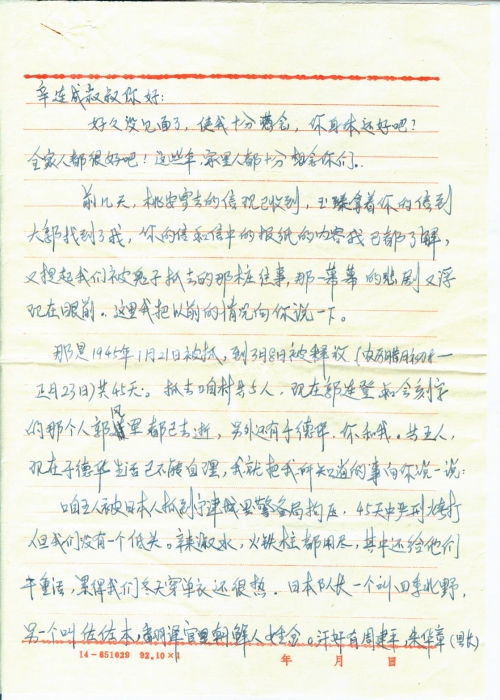 辛连成叔叔你好：
好久没见面了，使我十分想念，你身体还好吧？
全家人都很好吧！这些年，家里人都十分想念你们。
前几天，桃安寄去的信现已收到，玉臻拿着你的信到
大郭找到了我，你的信和信中的报纸的内容我已都了解，
又提起我们被鬼子抓去的那桩往事，那一幕幕的悲剧又浮
现在眼前。这里我把以前的情况向你说一下。
那是1945年1月21日被抓，到3月8日被释放（农历腊月初八—
正月23日）共45天。抓去咱村共5人，现在郭连登和会刻字
的那个人郭凤里都已去逝，另外还有于德华、你和我。共五人，
现在于德华生活已不能自理，我就把我所知道的事向你说一说：
咱五人被日本人抓到宁津城里警备局拘压，45天中严刑拷打
但我们没有一个低头。辣椒水，火铁柱都用尽，其中还给他们
干重活，累得我们冬天穿单衣还很热。日本队长一个叫四季北野，
另一个叫佐佐木，翻译官朝鲜人姓金。汗奸有周建平、朱华章（团长）
14-651029 92.10×1 年 月 日